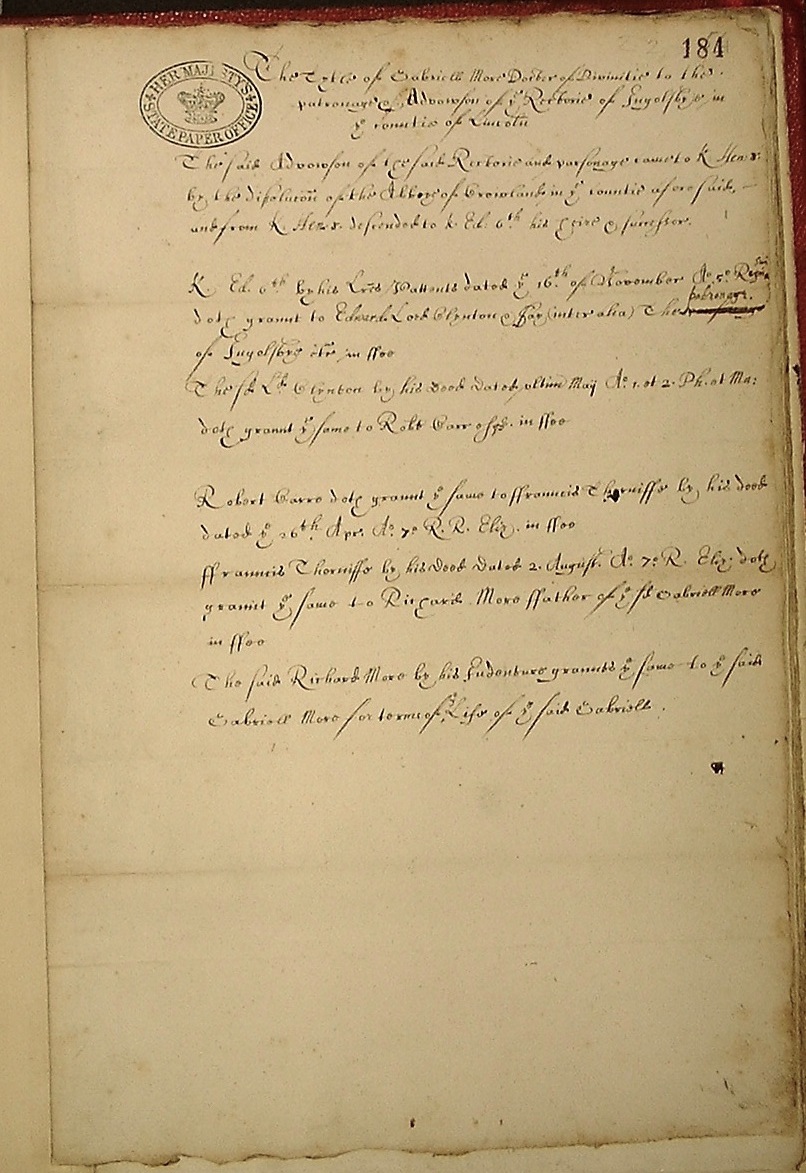 184
HER MAJESTYS STATE PAPER OFFICE
The Tytle of Gabriell More Docter of Divinitie to the
patronage & Advowson of yͤ Rectorie of Ingolsbye in
yͤ countie of Lincoln
The said Advowson of the said Rectorie and parsonage came to K Hen: 8:
by the disolucōn of the Abbey of Crowland in yͤ countie aforesaid, —
and from K. Hen: 8. descended to k Ed: 6ᵗʰ his heire & successor.
K. Ed. 6ᵗʰ by his Lr̄es Pattents dated yͤ 16ᵗʰ of November Aᵒ 5ᵒ Regni sui
doth graunt to Edward Lord Clynton & Say (inter alia) The patronage
of Ingolsbye etc̄ in ffee
The sd Ld Clynton by his Deed dated ultim̄ Maij Aᵒ 1. et 2. Ph. et Ma:
doth graunt yͤ same to Robt Carr in ffee
Robert Carre doth graunt yͤ same to ffrauncis Thornisse by his deed
dated yͤ 26ᵗʰ Apr. Aᵒ 7ᵒ R. R. Eliz. in ffee
ffrauncis Thornisse by his Deed Dated 2. August. Aᵒ 7ᵒ R. Eliz: doth
graunt yͤ same to Richard More ffather of yͤ sd Gabriell More
in ffee
The said Richard More by his Indenture graunts yͤ same to yͤ said
Gabriell More for terme of yͤ Life of yͤ said Gabriell.